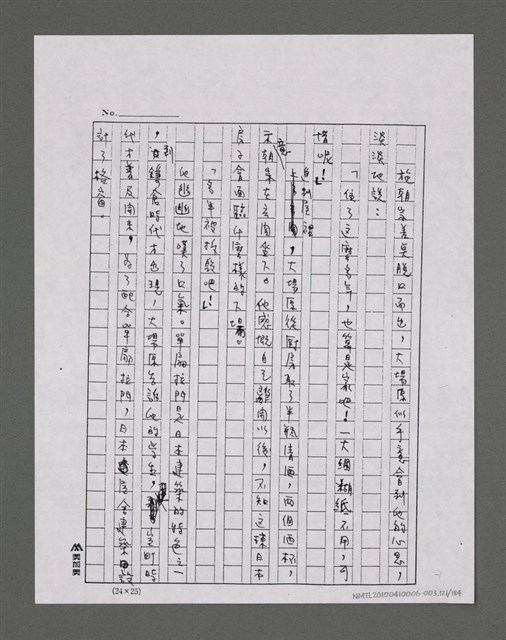 No.
施朝宗差點脫口而出，大場原似乎意會到他的心思，
淡淡地說：
「住了這麼多年，也算是家吧！一大綑糊紙不用，可
惜呢！」
進到屋裡，大場原從廚房取了半瓶清酒，兩個酒杯，
示意朝宗在玄關坐下。他感慨自己離開以後，不知這棟日本
房子會面臨什麼樣的下場。
「多半被拆毀吧！」
他幽幽地嘆了口氣。單扇拉門是日本建築的特色之一
，到鎌倉時代才出現，大場原告訴他的學生，室町時
代才普及開來，為了配合單扇拉門，日本房舍建築設
計了格窗。
(24×25)
NMTL20100410006-003